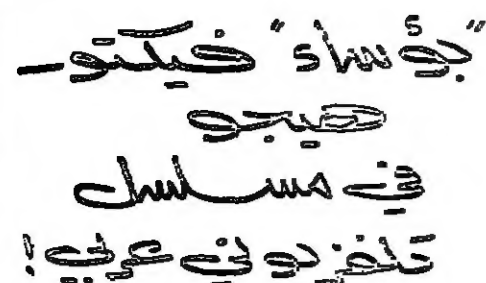 "بؤساء" فيكتور
هيجو
في مسلسل
تلفزيوني عربي!